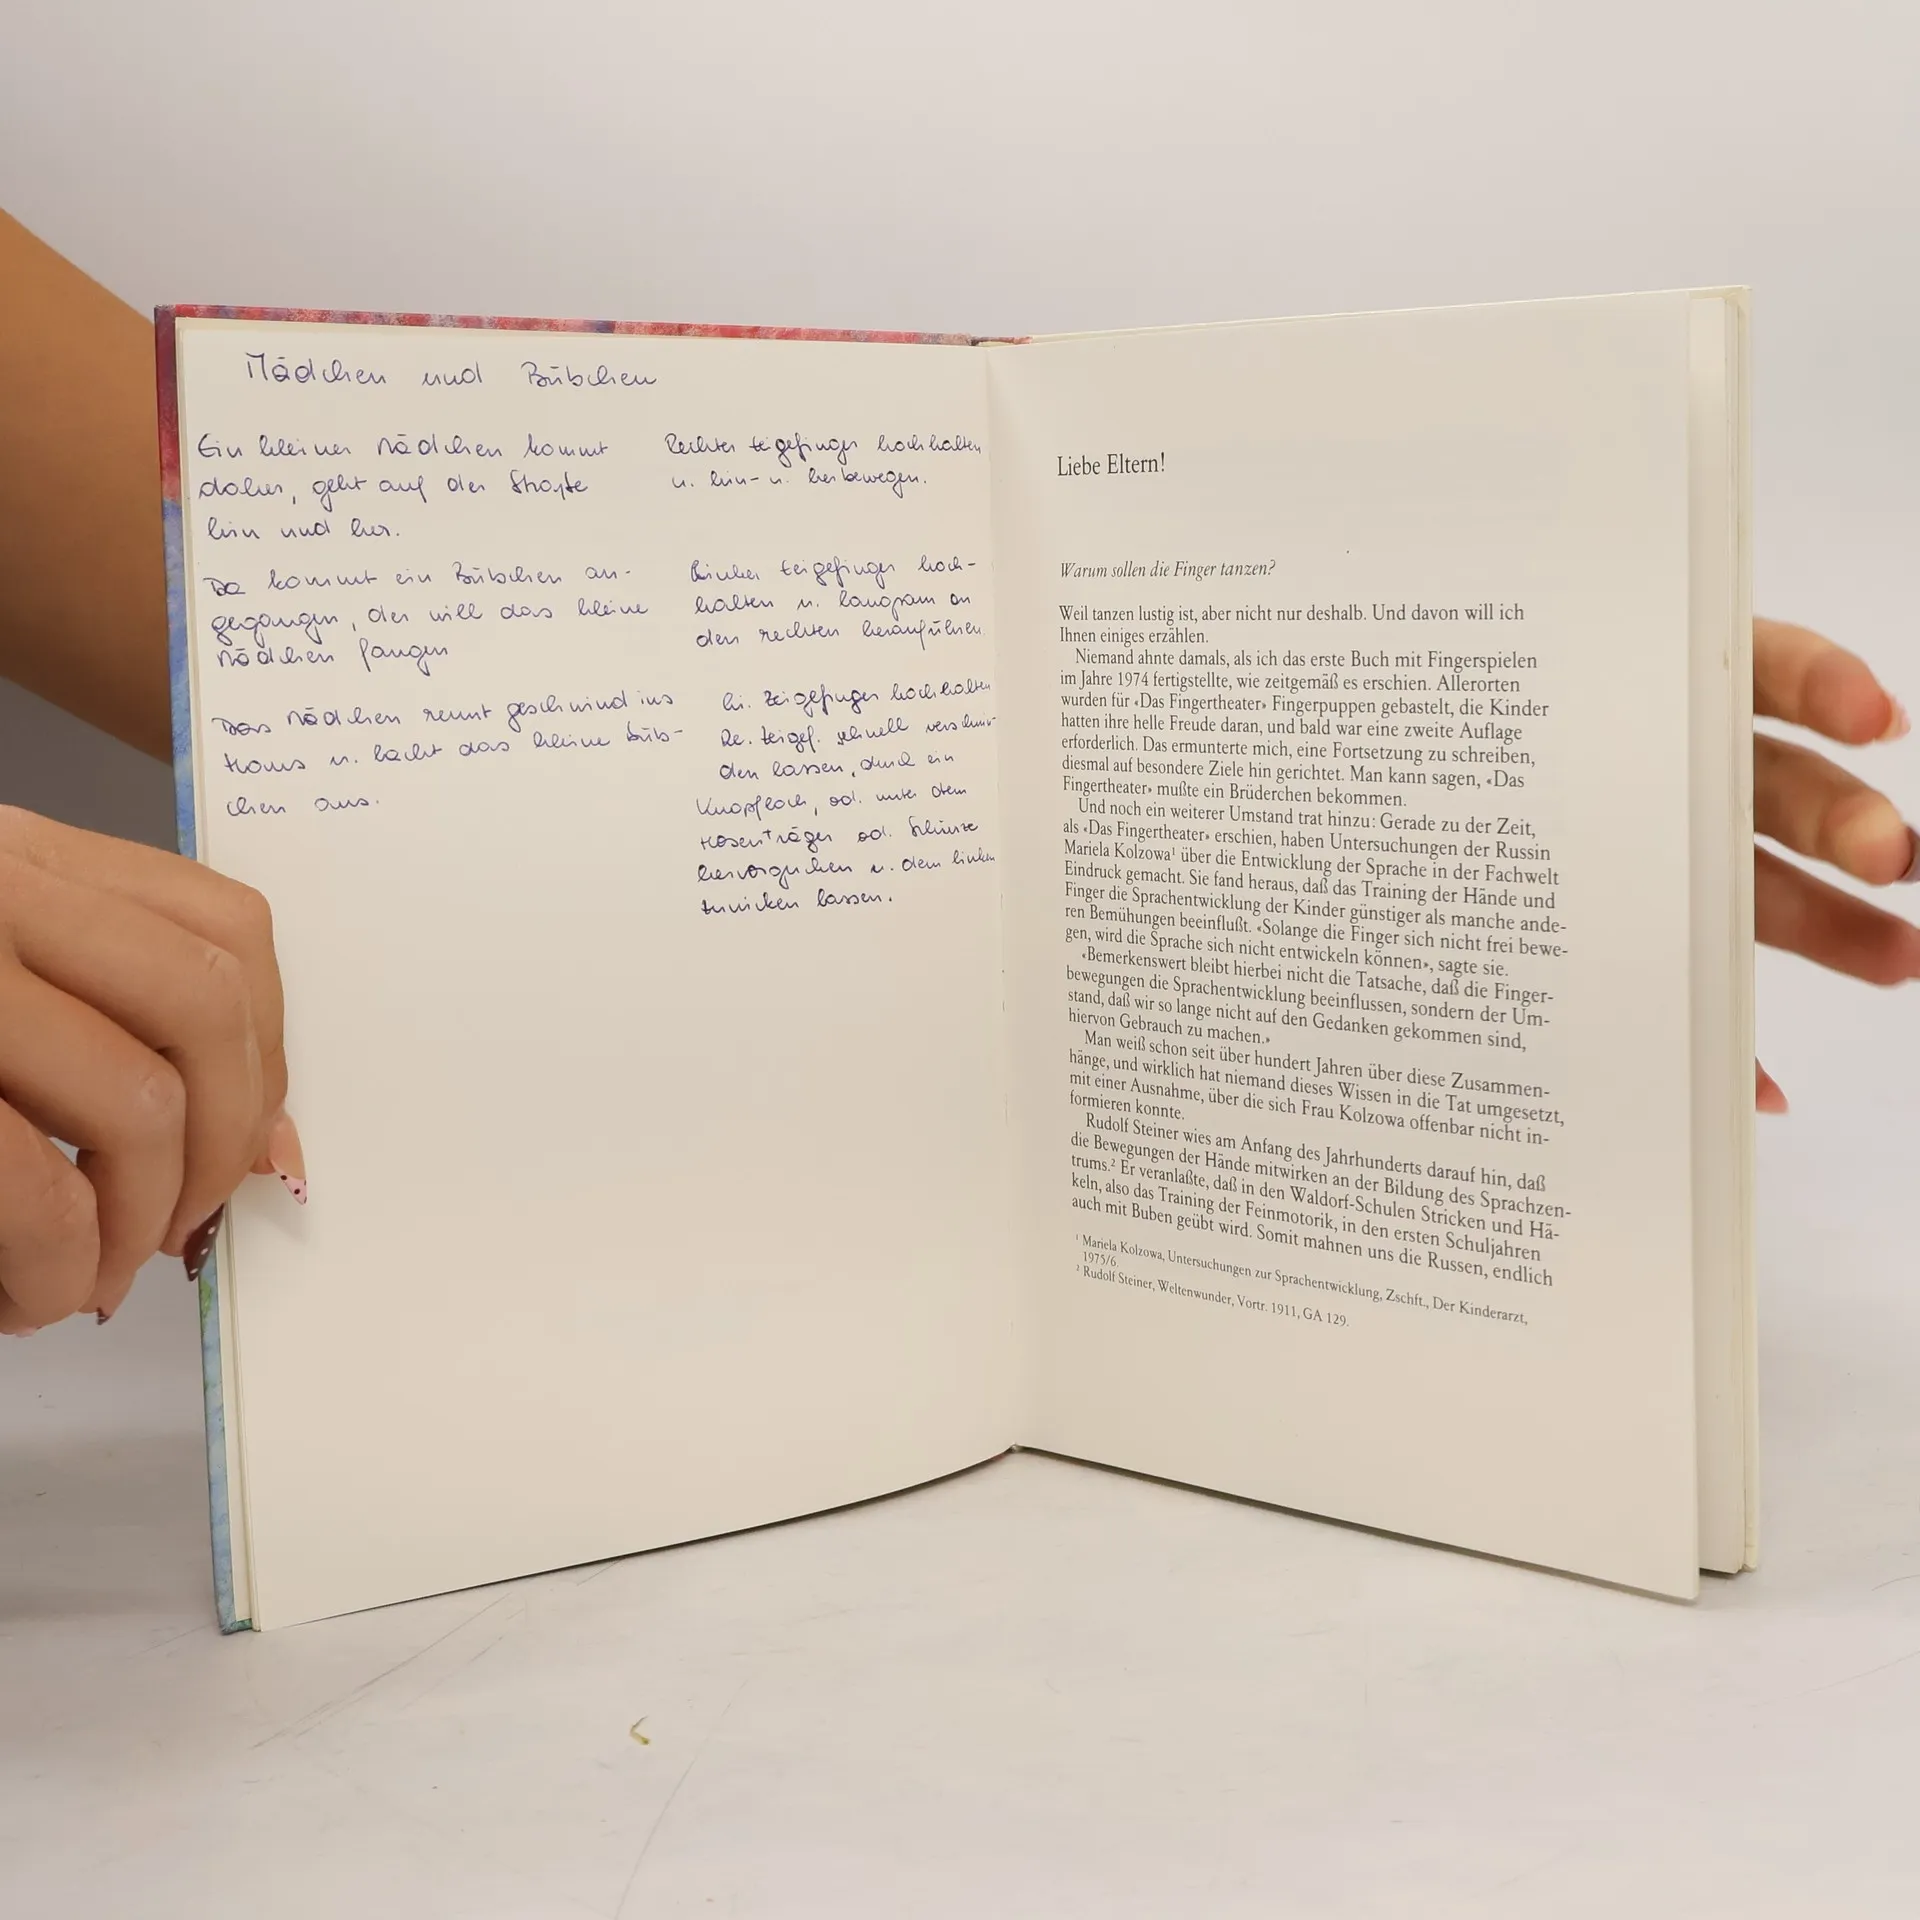 Mädchen und Bübchen
Ein kleines Mädchen kommt
daher, geht auf der Straße
hin und her.
Da kommt ein Bübchen an-
gegangen, der will das kleine
Mädchen fangen
Das Mädchen rennt geschwind ins
Haus u. lacht das kleine Büb-
chen aus.
Rechter Zeigefinger hochhalten
u. hin- u. herbewegen.
Linker Zeigefinger hoch-
halten u. langsam an
den rechten heranführen.
li. Zeigefinger hochhalten
Re. Zeigef. schnell verschwin-
den lassen, durch ein
Knopfloch, od. unter dem
Hosenträger od. Schürze
hervorgucken u. dem linken
zunicken lassen.
Liebe Eltern!
Warum sollen die Finger tanzen?
Weil tanzen lustig ist, aber nicht nur deshalb. Und davon will ich
Ihnen einiges erzählen.
Niemand ahnte damals, als ich das erste Buch mit Fingerspielen
im Jahre 1974 fertigstellte, wie zeitgemäß es erschien. Allerorten
wurden für «Das Fingertheater» Fingerpuppen gebastelt, die Kinder
hatten ihre helle Freude daran, und bald war eine zweite Auflage
erforderlich. Das ermunterte mich, eine Fortsetzung zu schreiben,
diesmal auf besondere Ziele hin gerichtet. Man kann sagen, «Das
Fingertheater» mußte ein Brüderchen bekommen.
Und noch ein weiterer Umstand trat hinzu: Gerade zu der Zeit,
als «Das Fingertheater» erschien, haben Untersuchungen der Russin
Mariela Kolzowa¹ über die Entwicklung der Sprache in der Fachwelt
Eindruck gemacht. Sie fand heraus, daß das Training der Hände und
Finger die Sprachentwicklung der Kinder günstiger als manche ande-
ren Bemühungen beeinflußt. «Solange die Finger sich nicht frei bewe-
gen, wird die Sprache sich nicht entwickeln können», sagte sie.
«Bemerkenswert bleibt hierbei nicht die Tatsache, daß die Finger-
bewegungen die Sprachentwicklung beeinflussen, sondern der Um-
stand, daß wir so lange nicht auf den Gedanken gekommen sind,
hiervon Gebrauch zu machen.»
Man weiß schon seit über hundert Jahren über diese Zusammen-
hänge, und wirklich hat niemand dieses Wissen in die Tat umgesetzt,
mit einer Ausnahme, über die sich Frau Kolzowa offenbar nicht in-
formieren konnte.
Rudolf Steiner wies am Anfang des Jahrhunderts darauf hin, daß
die Bewegungen der Hände mitwirken an der Bildung des Sprachzen-
trums.² Er veranlaßte, daß in den Waldorf-Schulen Stricken und Hä-
keln, also das Training der Feinmotorik, in den ersten Schuljahren
auch mit Buben geübt wird. Somit mahnen uns die Russen, endlich
¹ Mariela Kolzowa, Untersuchungen zur Sprachentwicklung, Zschft., Der Kinderarzt,
1975/6.
² Rudolf Steiner, Weltenwunder, Vortr. 1911, GA 129.